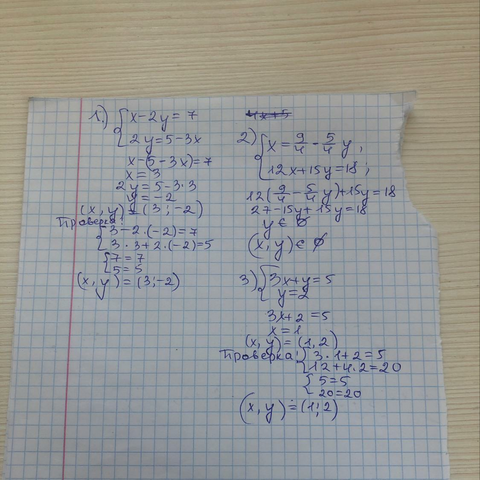 1.) { x-2y=7
2y=5-3x
x-(5-3x)=7
x=3
2y=5-3·3
y=-2
(x,y)=(3;-2)
Проверка:
{ 3-2·(-2)=7
3·3+2·(-2)=5
{ 7=7
5=5
(x,y)=(3;-2)
4x+5
2) { x=9/4-5/4y,
12x+15y=18;
12(9/4-5/4y)+15y=18
27-15y+15y=18
y∈∅
(x,y)∈∅
3) { 3x+y=5
y=2
3x+2=5
x=1
(x,y)=(1,2)
Проверка: { 3·1+2=5
12+4·2=20
{ 5=5
20=20
(x,y)=(1;2)